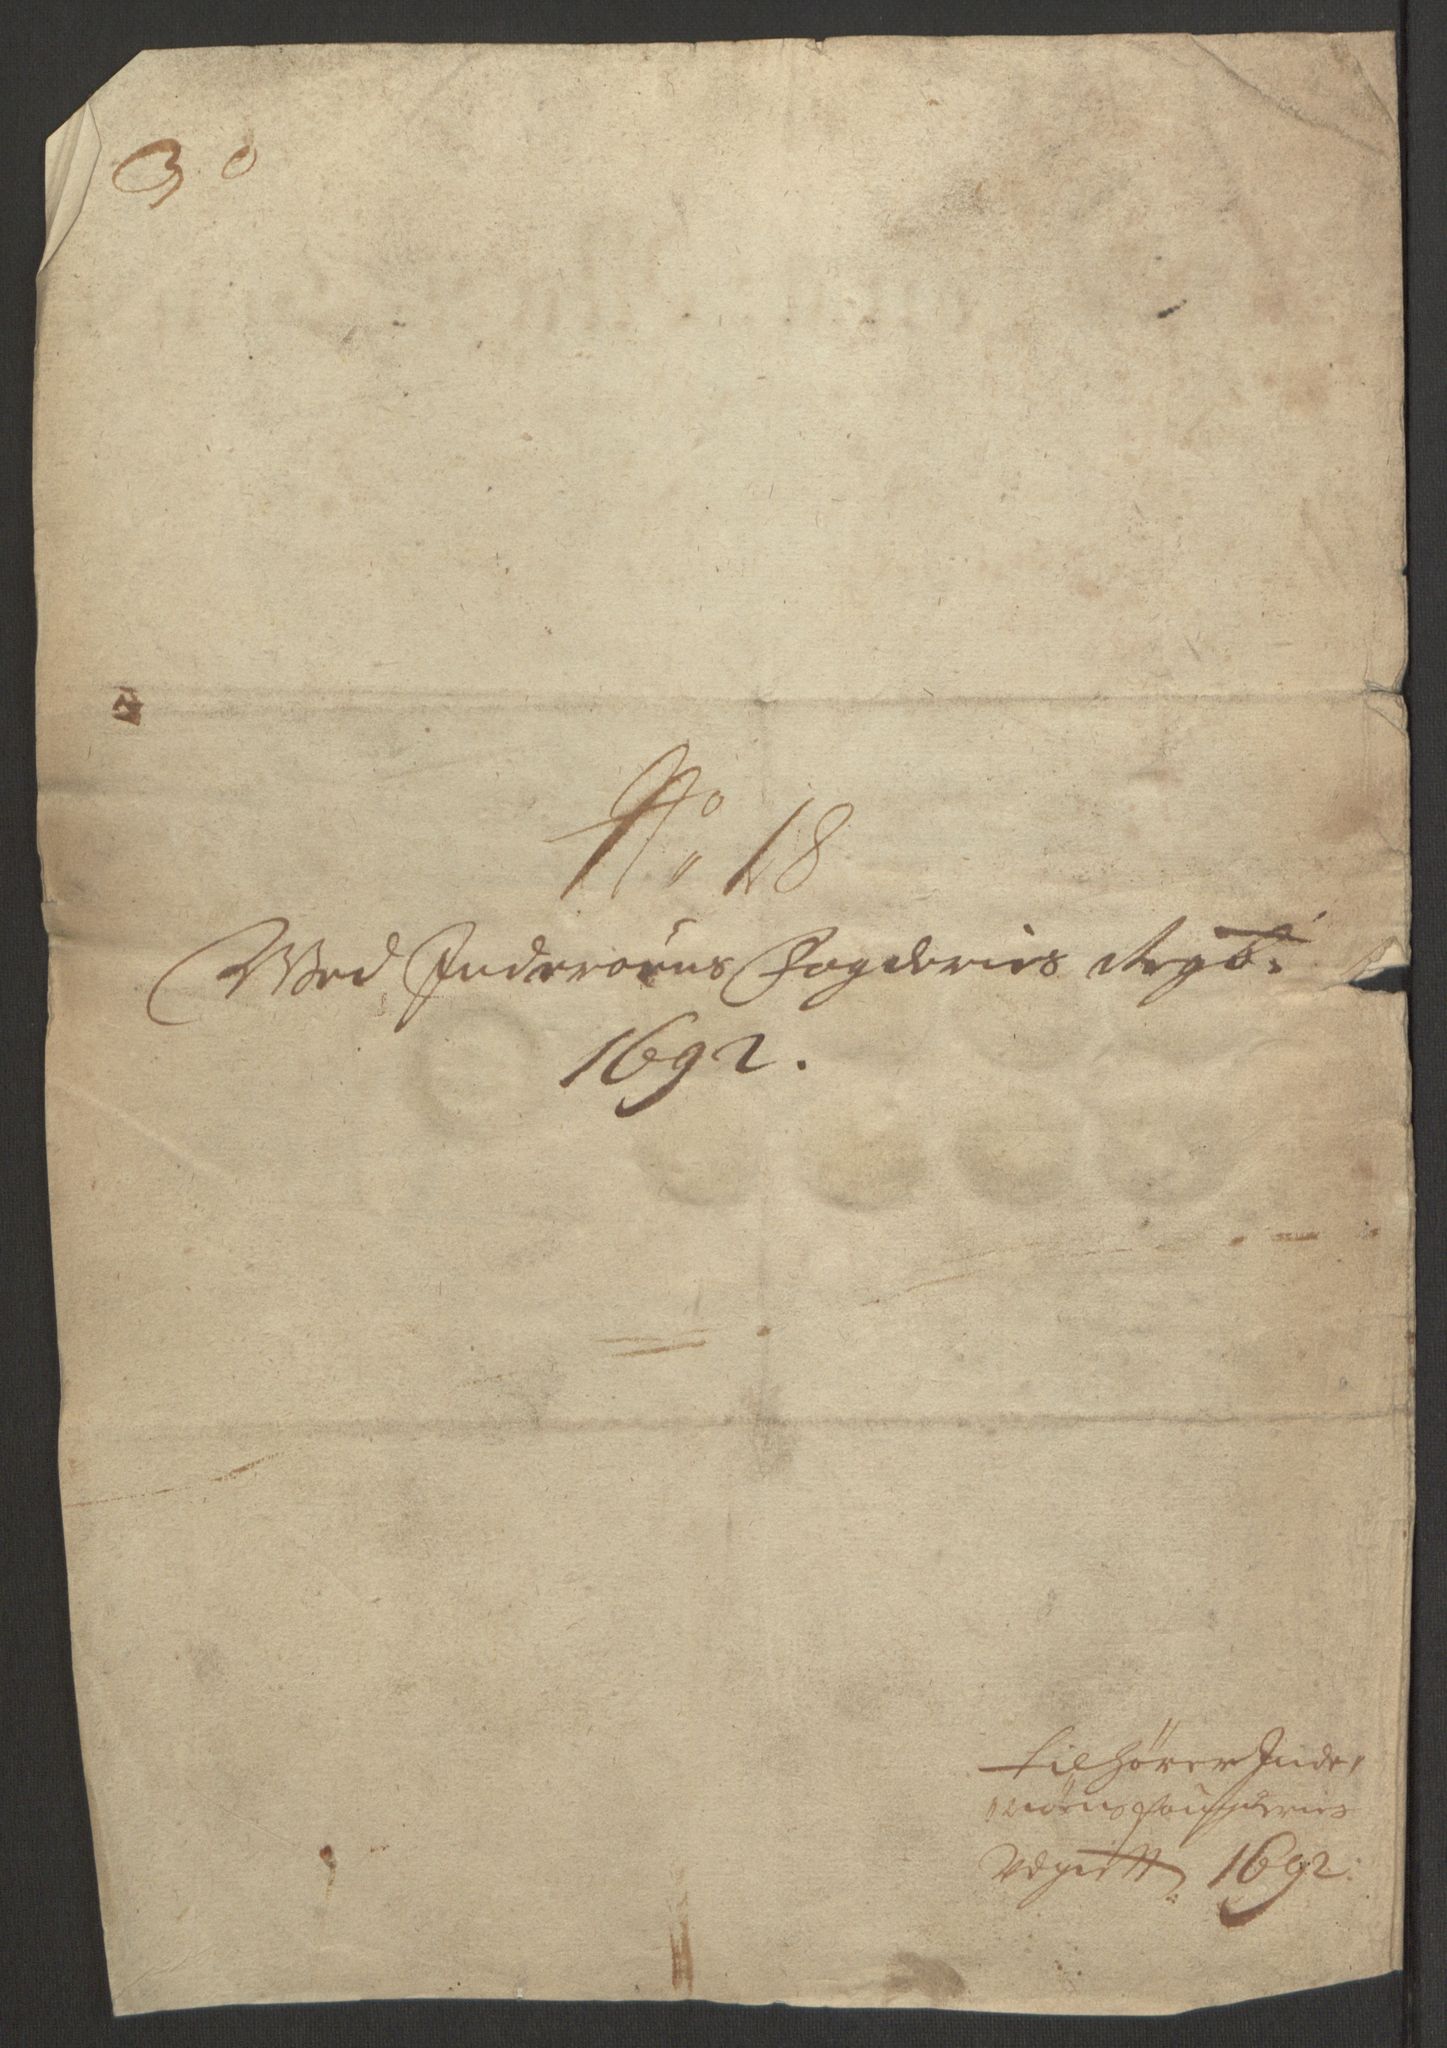 No: 18
Med Inderøens Fogderies Regb:
1692.
tilhører Inder
øens fougderies
Udgifft 1692: